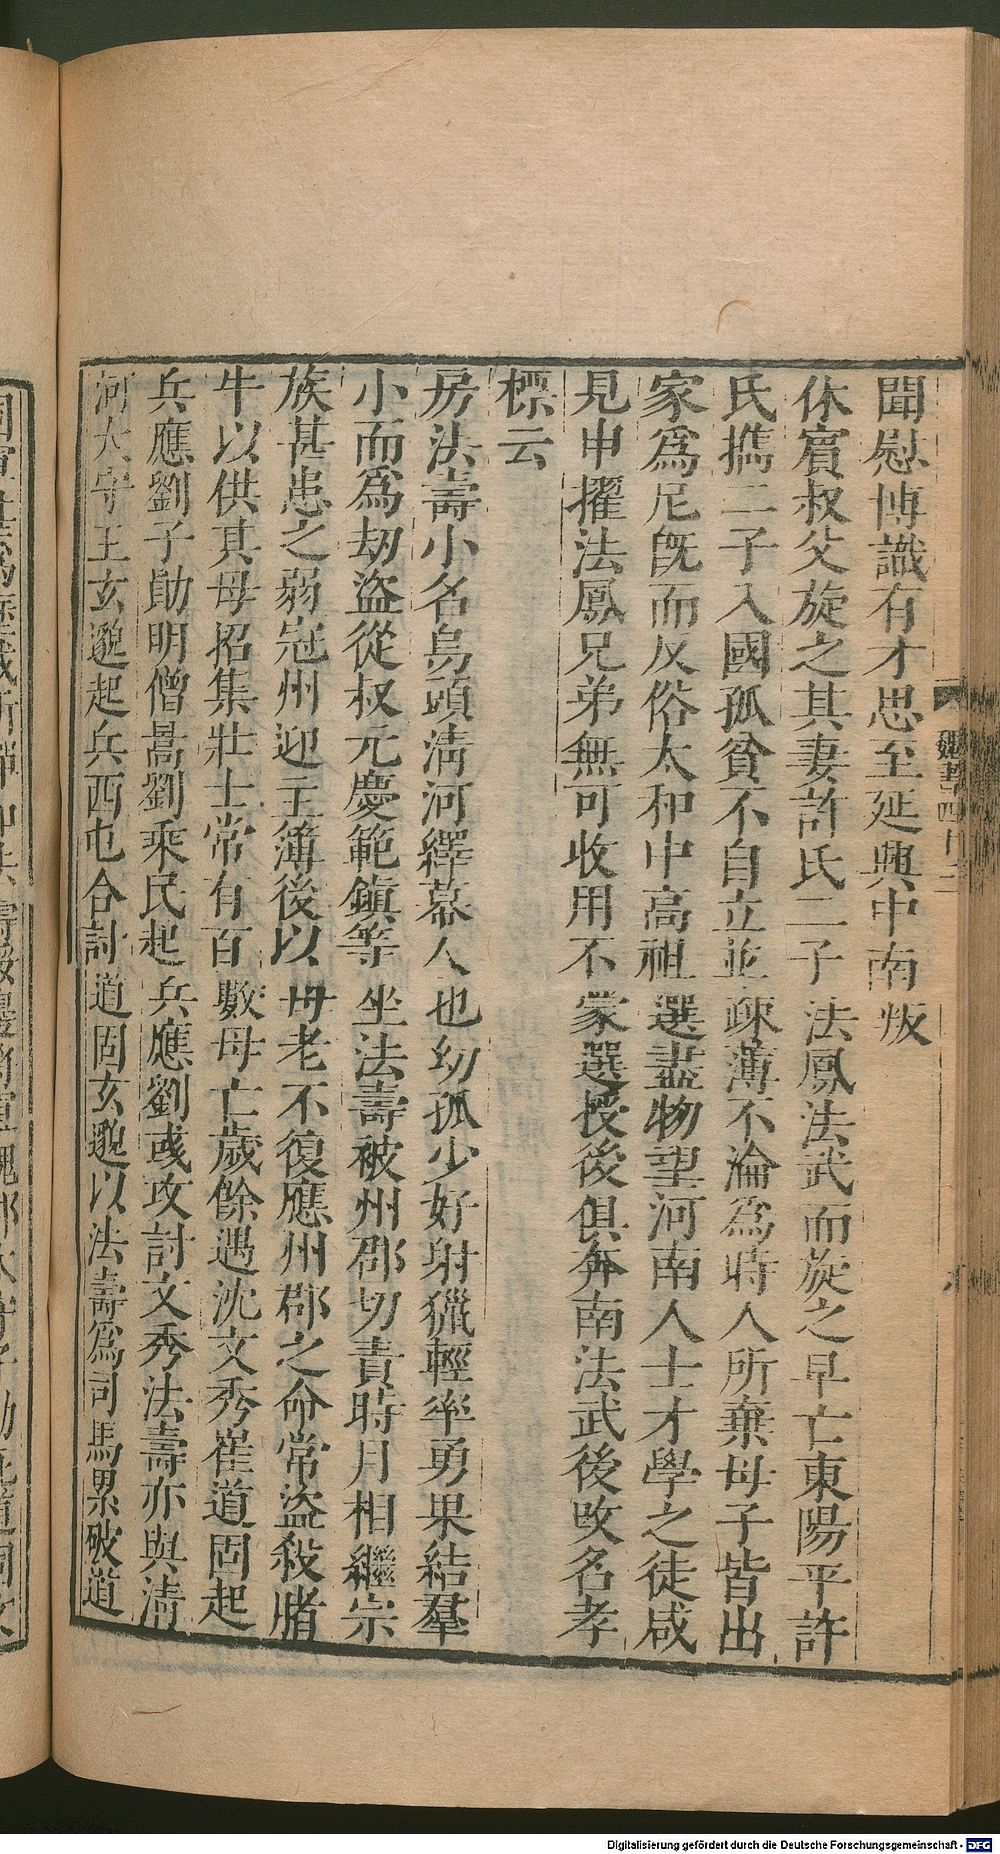 聞慰博識有才思至延興中南叛
休賓叔父旋之其妻許氏二子法鳳法武而旋之早亡東陽平許
氏攜二子入國孤貧不自立並疎薄不淪爲時人所棄母子皆出
家爲尼既而反俗太和中高祖選盡物望河南人士才學之徒咸
見申擢法鳳兄弟無可收用不蒙選授後俱奔南法武後改名孝
標云
房法壽小名烏頭淸河繹幕人也幼孤少好射獵輕率勇果結羣
小而爲劫盜從叔元慶範鎮等坐法壽被州郡切責時月相繼宗
族甚患之弱冠州迎主簿後以母老不復應州郡之命常盜殺猪
牛以供其母招集壯士常有百數母亡歲餘遇沈文秀崔道固起
兵應劉子勛明僧暠劉乘民起兵應劉彧攻討文秀法壽亦與淸
河太守王玄邈起兵西屯合討道固玄邈以法壽爲司馬累破道
魏書四十三
Digitalisierung gefördert durch die Deutsche Forschungsgemeinschaft - DFG